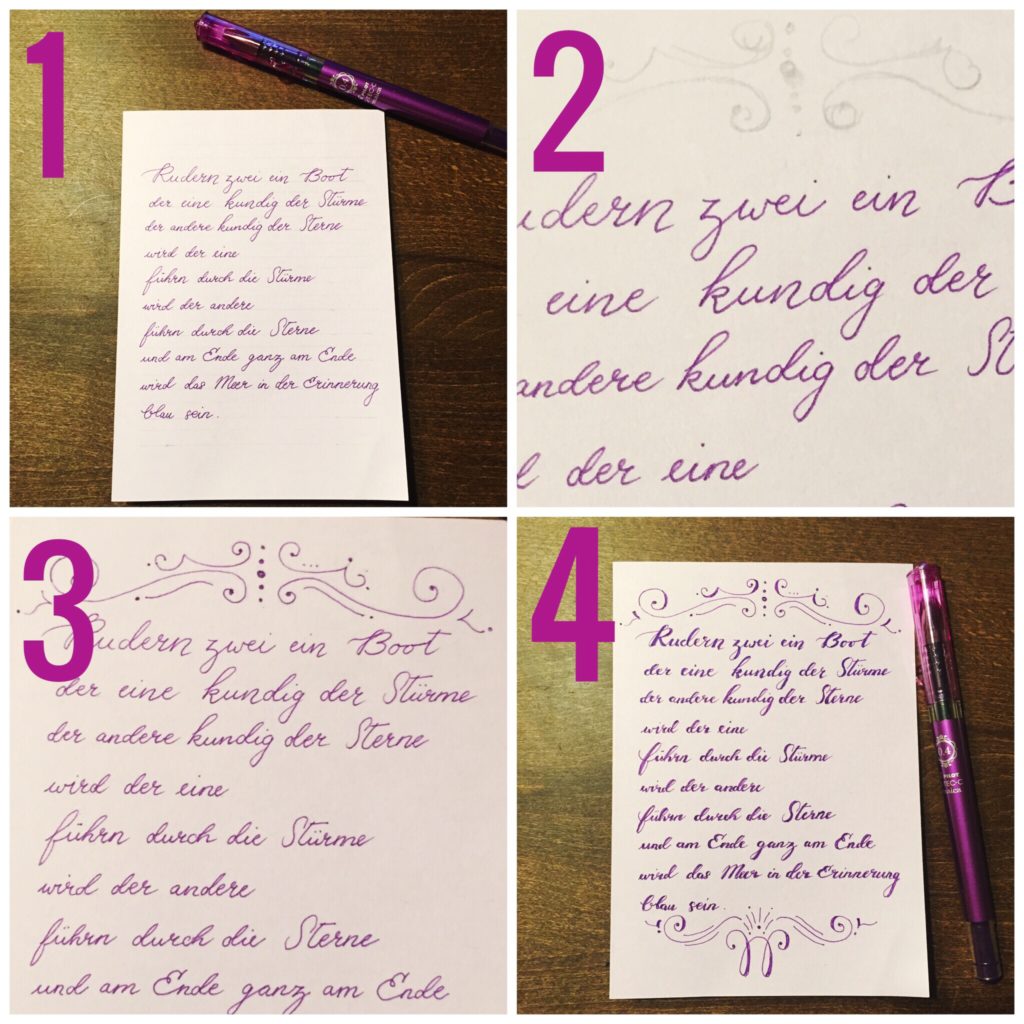 1
Rudern zwei ein Boot
der eine kundig der Stürme
der andere kundig der Sterne
wird der eine
führn durch die Stürme
wird der andere
führn durch die Sterne
und am Ende ganz am Ende
wird das Meer in der Erinnerung
blau sein.
0.4
2
udern zwei ein B
eine kundig der
andere kundig der St
d der eine
3
Rudern zwei ein Boot
der eine kundig der Stürme
der andere kundig der Sterne
wird der eine
führn durch die Stürme
wird der andere
führn durch die Sterne
und am Ende ganz am Ende
4
Rudern zwei ein Boot
der eine kundig der Stürme
der andere kundig der Sterne
wird der eine
führn durch die Stürme
wird der andere
führn durch die Sterne
und am Ende ganz am Ende
wird das Meer in der Erinnerung
blau sein.
0.4
PILOT